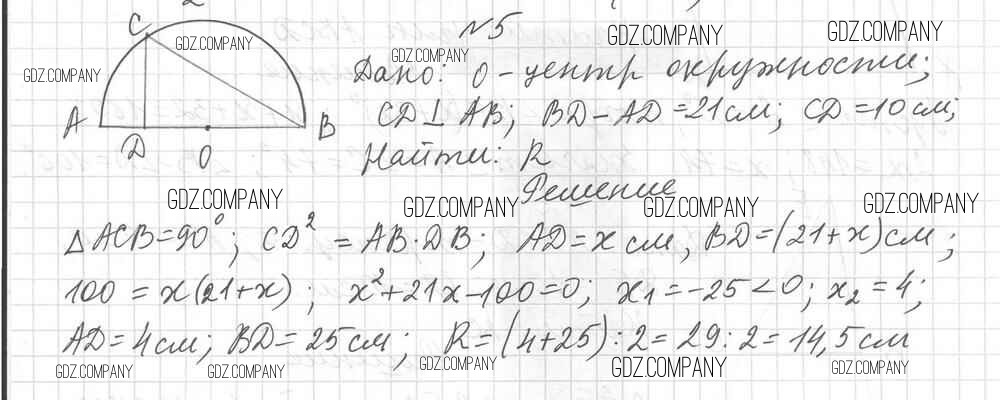 N5
Дано: O - центр окружности;
CD ⊥ AB; BD - AD = 21 см; CD = 10 см;
Найти: R
C
A D O B
Решение
△ ACB = 90°; CD² = AB · DB; AD = x см, BD = (21 + x) см;
100 = x(21 + x); x² + 21x - 100 = 0; x₁ = -25 < 0; x₂ = 4;
AD = 4 см; BD = 25 см; R = (4 + 25) : 2 = 29 : 2 = 14,5 см
GDZ.COMPANY
GDZ.COMPANY
GDZ.COMPANY
GDZ.COMPANY
GDZ.COMPANY
GDZ.COMPANY
GDZ.COMPANY
GDZ.COMPANY
GDZ.COMPANY
GDZ.COMPANY
GDZ.COMPANY
GDZ.COMPANY
GDZ.COMPANY
GDZ.COMPANY